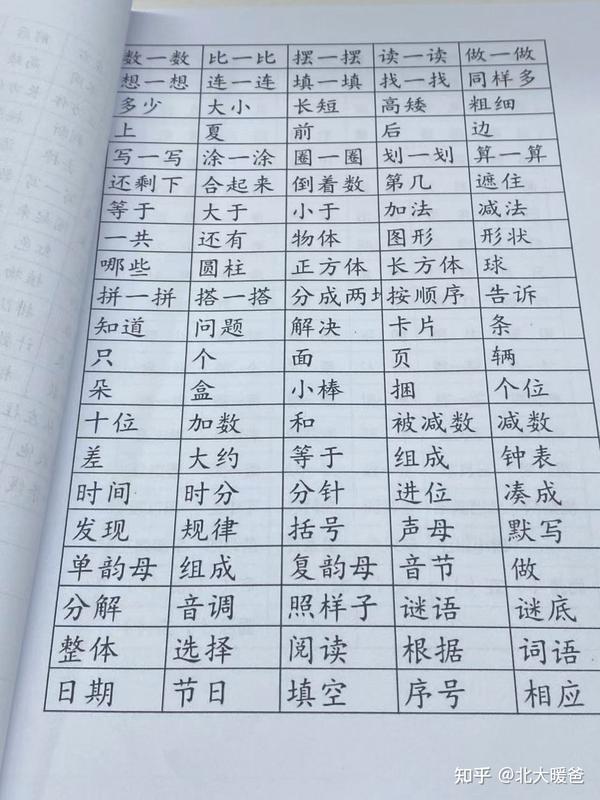 数一数 比一比 摆一摆 读一读 做一做
想一想 连一连 填一填 找一找 同样多
多少 大小 长短 高矮 粗细
上 夏 前 后 边
写一写 涂一涂 圈一圈 划一划 算一算
还剩下 合起来 倒着数 第几 遮住
等于 大于 小于 加法 减法
一共 还有 物体 图形 形状
哪些 圆柱 正方体 长方体 球
拼一拼 搭一搭 分成两 按顺序 告诉
知道 问题 解决 卡片 条
只 个 面 页 辆
朵 盒 小棒 捆 个位
十位 加数 和 被减数 减数
差 大约 等于 组成 钟表
时间 时分 分针 进位 凑成
发现 规律 括号 声母 默写
单韵母 组成 复韵母 音节 做
分解 音调 照样子 谜语 谜底
整体 选择 阅读 根据 词语
日期 节日 填空 序号 相应
知乎 @北大暖爸